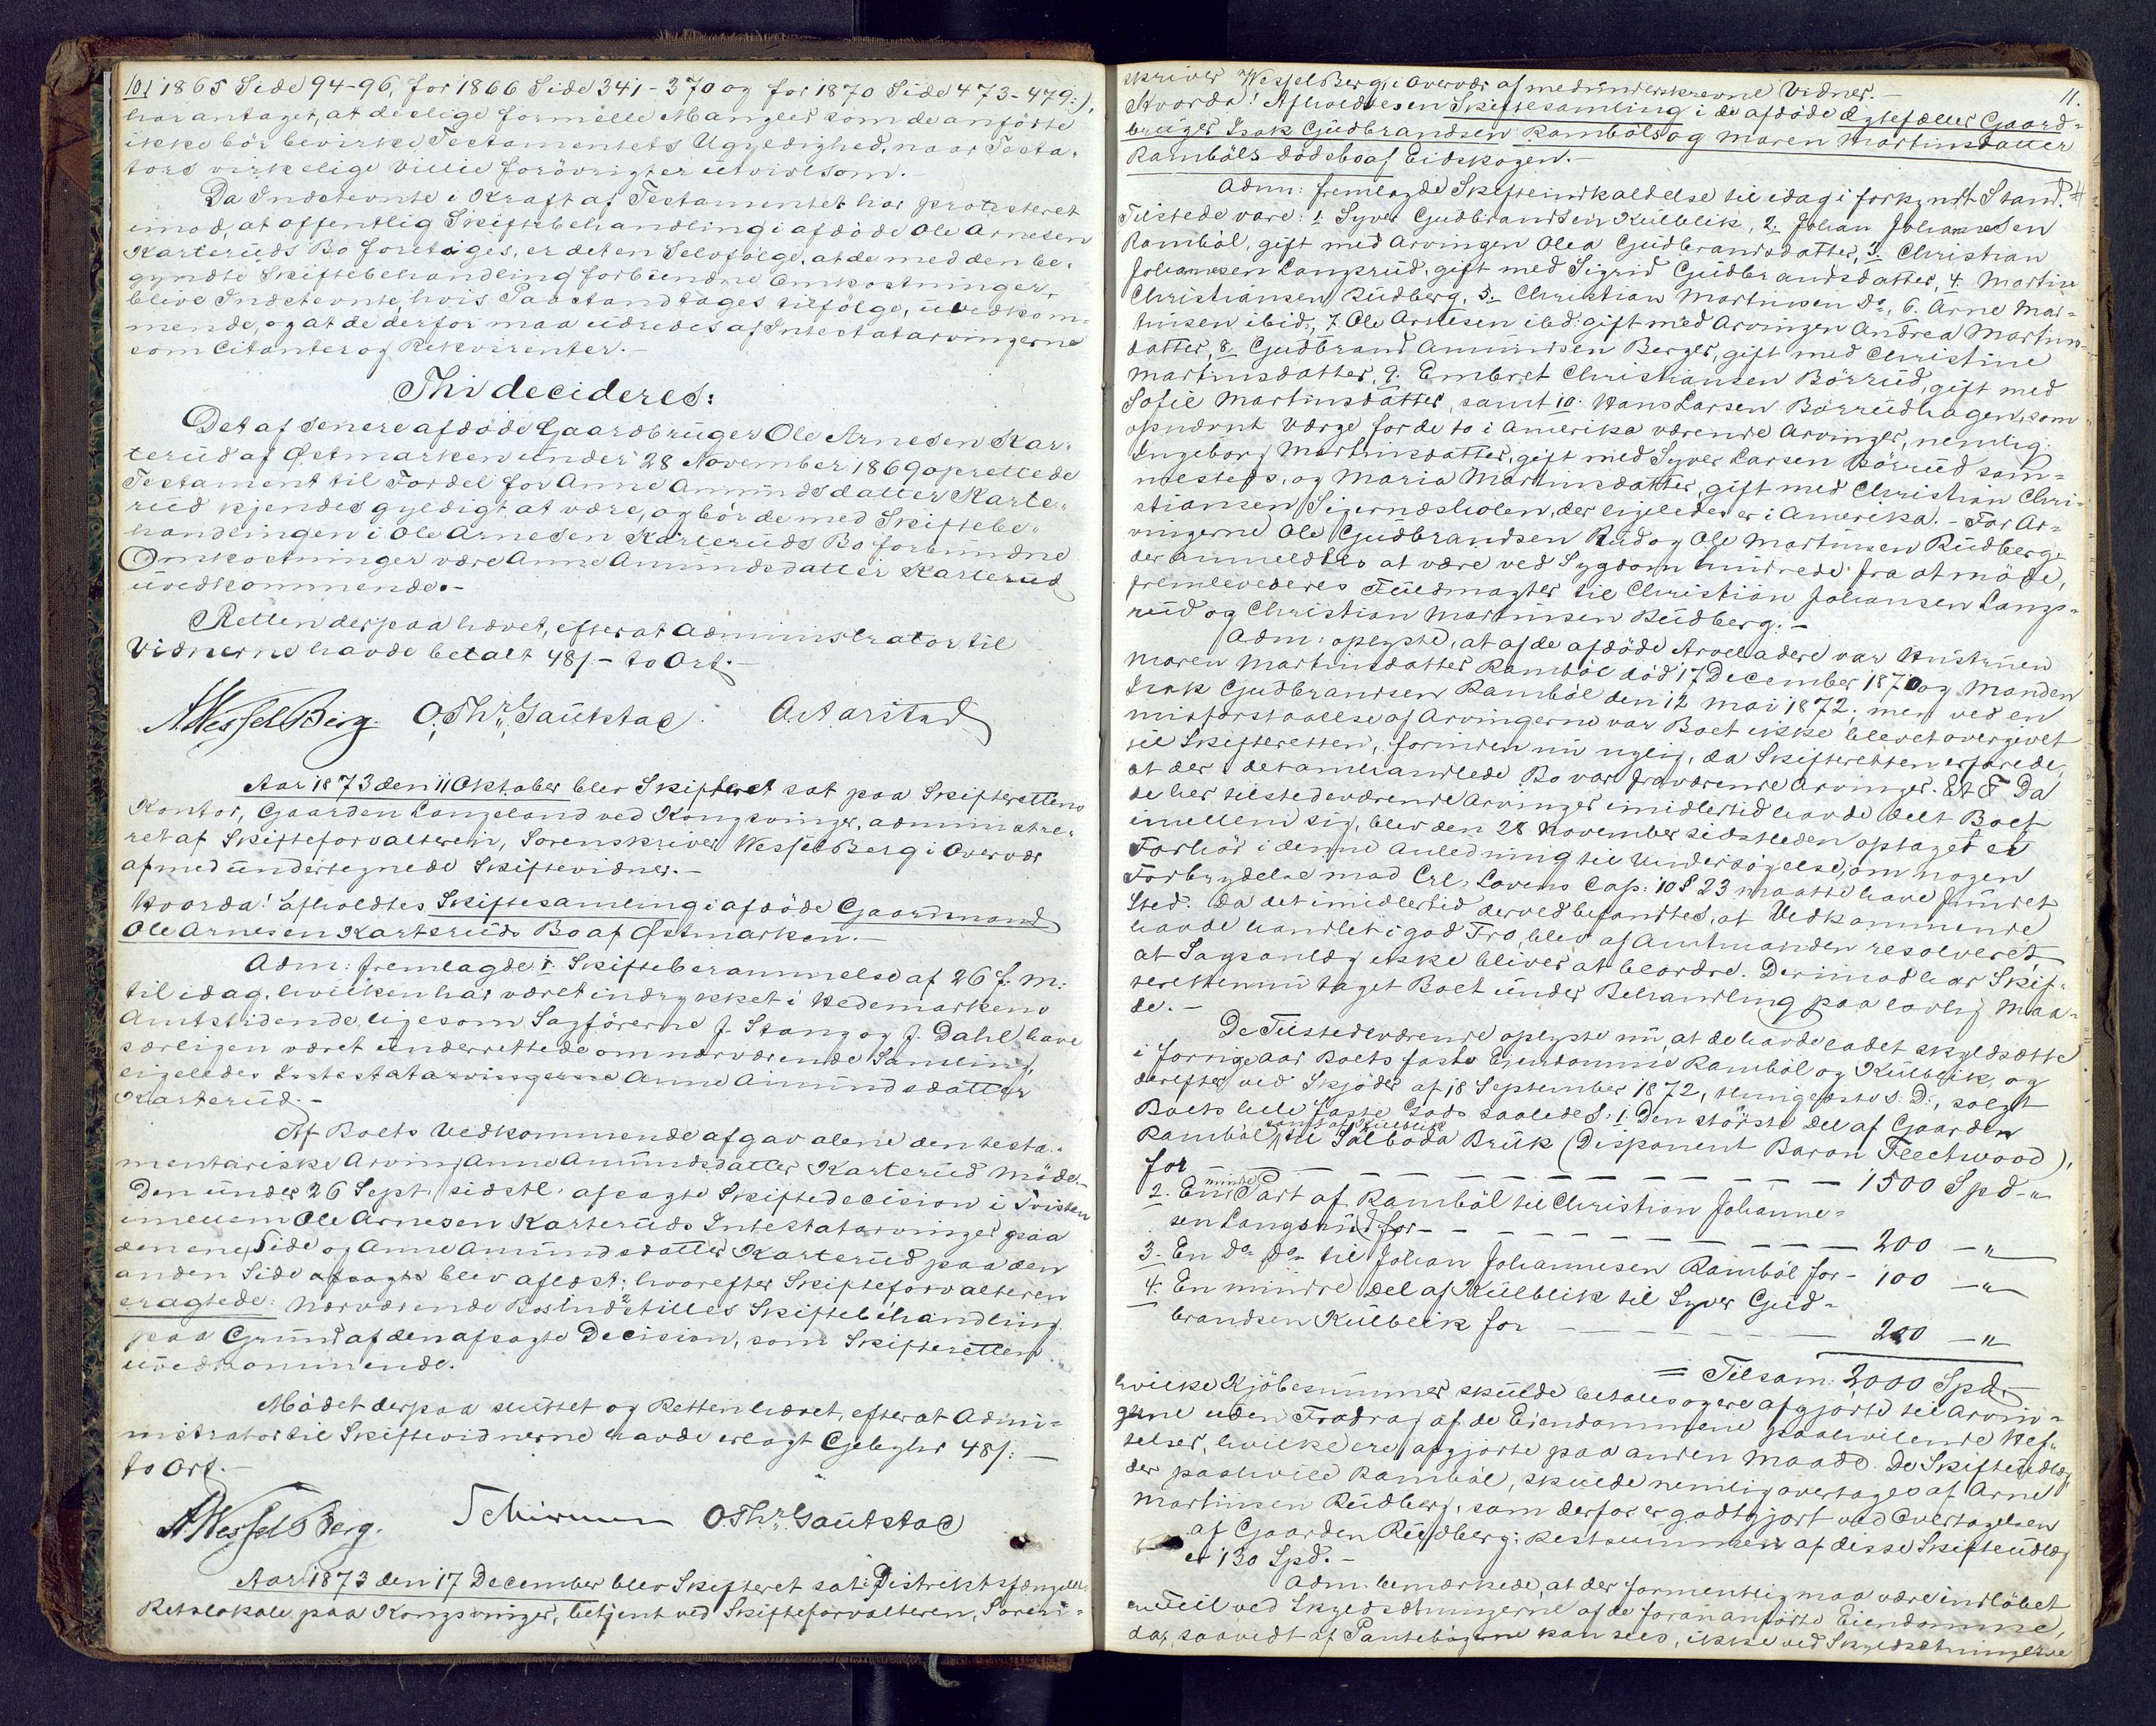 10/ 1865 Side 94-96, for 1866 Side 341-370 og for 1870 Side 473-479:),
har antaget, at deslige formelle Mangler som de anførte
ikke bör bevirke Testamentets Ugyldighed, naar Testa-
tors virkelige Villie forövrigt er utvivlsom.
Da Indstevnte i Kraft af Testamentet har protesteret
imod, at offentlig Skiftebehandling i afdöde Ole Arnesen
Karteruds Bo foretages, er det en Selvfölge, at de med den be-
gyndte Skiftebehandling forbundne Omkostninger,
blive Indstevnte, hvis Paastand tages tilfölge, uvedkom-
mende, og at de derfor maa udredes af Intestatarvingerne
som Citanter og Rekvirenter.-
Thi decideres:
Det af senere afdöde Gaardbruger Ole Arnesen Kar-
terud af Østmarken under 28 November 1869 oprettede
Testament til Fordel for Anne Amundsdatter Karte-
rud kjendes gyldigt at være, og bör de med Skiftebe-
handlingen i Ole Arnesen Karteruds Bo forbundne
Omkostninger være Anne Amundsdatter Karterud
uvedkommende.-
Retten derpaa hævet, efterat Administrator til
Vidnerne havde betalt 48/- to Ort.-
A Wessel Berg. O. Thr. Gaukstad. O. Aarstad
Aar 1873 den 11 Oktober blev Skifteret sat paa Skifterettens
Kontor, Gaarden Langeland ved Kongsvinger, administre-
ret af Skifteforvalteren, Sorenskriver Wessel Berg i Overvær
af medundertegnede Skiftevidner.-
Hvorda! afholdtes Skiftesamling i afdöde Gaardmand
Ole Arnesen Karteruds Bo af Østmarken.-
Adm: fremlagde 1. Skifteberammelse af 26 f. M:
til idag, hvilken har været indrykket i Hedemarkens
Amtstidende ligesom Sagförerne J. Stang og J. Dahl have
særligen været underrettede om nærværende Samling,
ligeledes Intestatarvingerne Anne Amundsdatter
Karterud.-
Af Boets Vedkommende afgav alene den testa-
mentariske Arving Anne Amundsdatter Karterud Möde.-
Den under 26 Sept. sidstl. afsagte Skiftedecision i Tvisten
imellem Ole Arnesen Karteruds Intestatarvinger paa
den ene Side og Anne Amundsdatter Karterud paa den
anden Side afsagte blev aflæst; hvorefter Skifteforvalteren
eragtede: Nærværende Bo Indstilles Skiftebehandling
paa Grund af den afsagte Decision, som Skifteretten
uvedkommende.
Mödet derpaa sluttet og Retten hævet, efterat Admi-
nistrator til Skiftevidnerne havde erlagt Gebyhr 48/:-
to Ort.-
A Wessel Berg. Schirmer O. Thr. Gaukstad
Aar 1873 den 17 December blev Skifteret sat i Distriktsfængslets
Retslokale paa Kongsvinger, betjent ved Skifteforvalteren, Soren-
11.
skriver Wessel Berg, i Overvær af medunderskrevne Vidner.-
Hvorda! Afholdtes en Skiftesamling i de afdöde Ægtefæller Gaard-
bruger Isak Gudbrandsen Ramböls og Maren Martinsdatter
Ramböls dödsbo af Eidskogen.-
Adm: fremlagde Skifteindkaldelse til idag i forkyndt Stand. #
Tilstede vare: 1. Syver Gudbrandsen Kulblik, 2. Johan Johannesen
Ramböl, gift med Arvingen Olea Gudbrandsdatter, 3. Christian
Johannesen Langsrud, gift med Sigrid Gudbrandsdatter, 4. Martin
Christiansen Rudberg, 5. Christian Martinsen Do, 6. Arne Mar-
tinsen ibid., 7. Ole Arnesen ibd: gift med Arvingen Andrea Martins-
datter, 8. Gudbrand Amundsen Berger, gift med Christine
Martinsdatter, 9. Embret Christiansen Börrud, gift med
Sofie Martinsdatter, samt 10. Hans Larsen Börrudhagen, som
opnævnt Værge for de to i Amerika værende Arvinger, nemlig:
Ingeborg Martinsdatter, gift med Syver Larsen Börrud sam-
mesteds, og Maria Martinsdatter, gift med Christian Chri-
stiansen Sigernæsholen, der ligeledes er i Amerika. - For Ar-
vingerne Ole Gudbrandsen Rud og Ole Martinsen Rudberg,
der anmeldtes at være ved Sygdom hindrede fra at möde,
fremlevedes Fuldmagter til Christian Johansen Langs-
rud og Christian Martinsen Rudberg.-
Adm: oplyste, at af de afdöde Arveladere var Hustruen
Maren Martinsdatter Ramböl död 17 December 1870 og Manden
Isak Gudbrandsen Ramböl den 12 Mai 1872; men ved en
misforstaaelse af Arvingerne var Boet ikke blevet overgivet
til Skifteretten, forinden nu nylig, da Skifteretten erfarede,
at der i det omhandlede Bo var fraværende Arvinger. Et F Da
de her tilstedeværende Arvinger imidlertid havde delt Boet
imellem sig, blev den 28 November sidstleden optaget et
Forhör i denne Anledning til Undersögelse, om nogen
Forbrydelse mod Crl. Lovens Cap: 10 § 23 maatte have fundet
Sted. Da det imidlertid derved befandtes, at Vedkommende
havde handlet i god Tro, blev af Amtmanden resolveret,
at Sagsanlæg ikke bliver at beordre. Derimod har Skif-
teretten nu taget Boet under Behandling paa lovlig Maa-
de.-
De Tilstedeværende oplyste nu, at de havde ladet skyldsætte
i forrige aar Boets faste Eiendomme Ramböl og Kulblik, og
derefter ved Skjöder af 18 September 1872, thinglæste s. D., solgt
Boets hele faste Gods saaledes: 1. Den störste Del af Gaarden
Ramböl samt af Kulblik til Salboda Bruk (Disponent Baron Fleetwood),
for - - - - - - - - - 1500 Spd-"
2. En mindre Part af Ramböl til Christian Johanne-
sen Langsrud for - - - - - - - 200 -"
3. En do do til Johan Johannesen Ramböl for - 100 -"
4. En mindre Del af Kulblik til Syver Gud-
brandsen Kulblik for - - - - - 200 -"
= Tilsam: 2000 Spd.
hvilke Kjöbesummer skulde betales og ere afgjorte til Arvin-
gerne uden Fradrag af de Eiendommene paahvilende Hef-
telser, hvilke ere afgjorte paa anden Maade. De Skifteudlæg
der paahvile Ramböl, skulde nemlig overtages af Arne
Martinsen Rudberg, som derfor er godtgjort ved Overtagelsen
af Gaarden Rudberg; Restsummen af disse Skifteudlæg
er 130 Spd.-
Adm. bemærkede, at der formentlig maa være indlöbet
en Feil ved Skyldsætningerne af de foran anförte Eiendomme,
da, saavidt af Pantebögerne kan sees, ikke ved Skyldsætningerne